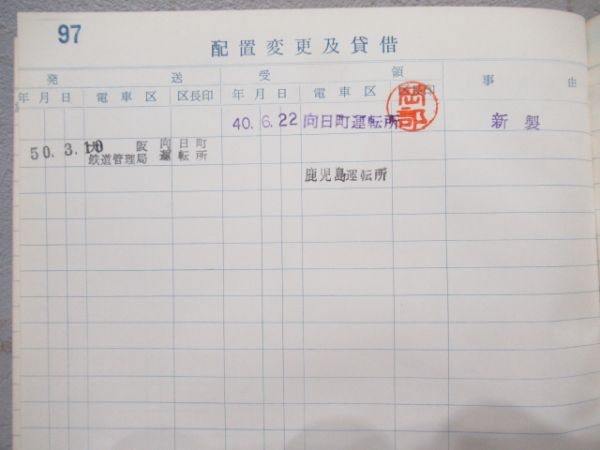 97
配置変更及貸借
発送 受領 事由
年月日 電車区 区長印 年月日 電車区 区長印
40.6.22 向日町運転所 岡部 新製
50.3.10 大阪 向日町
鉄道管理局 運転所
鹿児島運転所